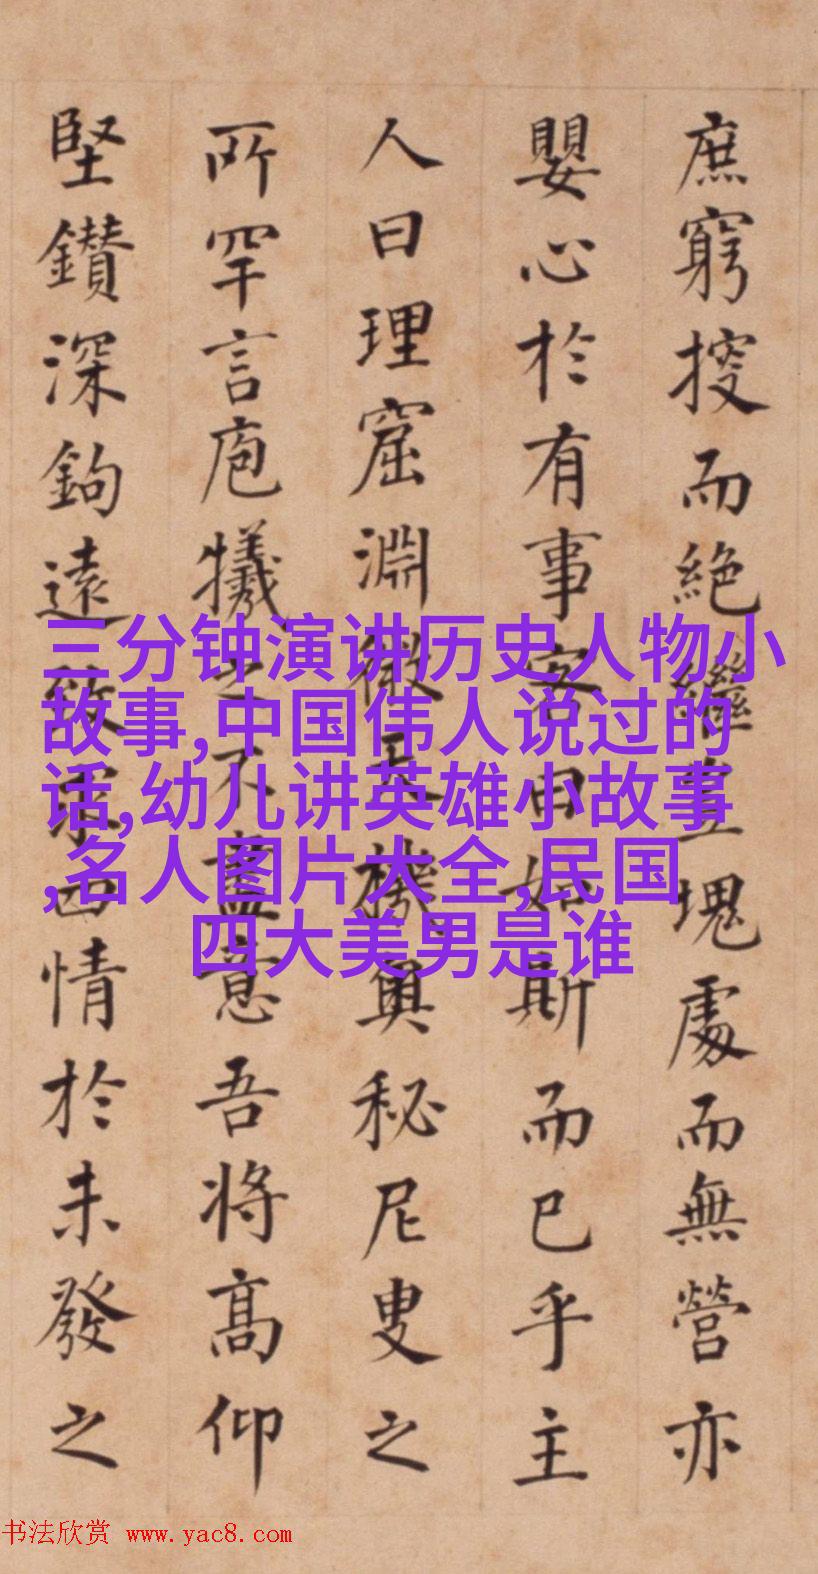 庶窮搜而絕繼豈塊處而無營亦
嬰心於有事客曰如斯而已乎主
人曰理窟淵微天機奧秘尼叟之
所罕言庖犧之不盡意吾將高仰
堅鑽深鉤遠致四情於未發之
三分钟演讲历史人物小
故事,中国伟人说过的
话,幼儿讲英雄小故事
,名人图片大全,民国
四大美男是谁
书法欣赏 www.yac8.com